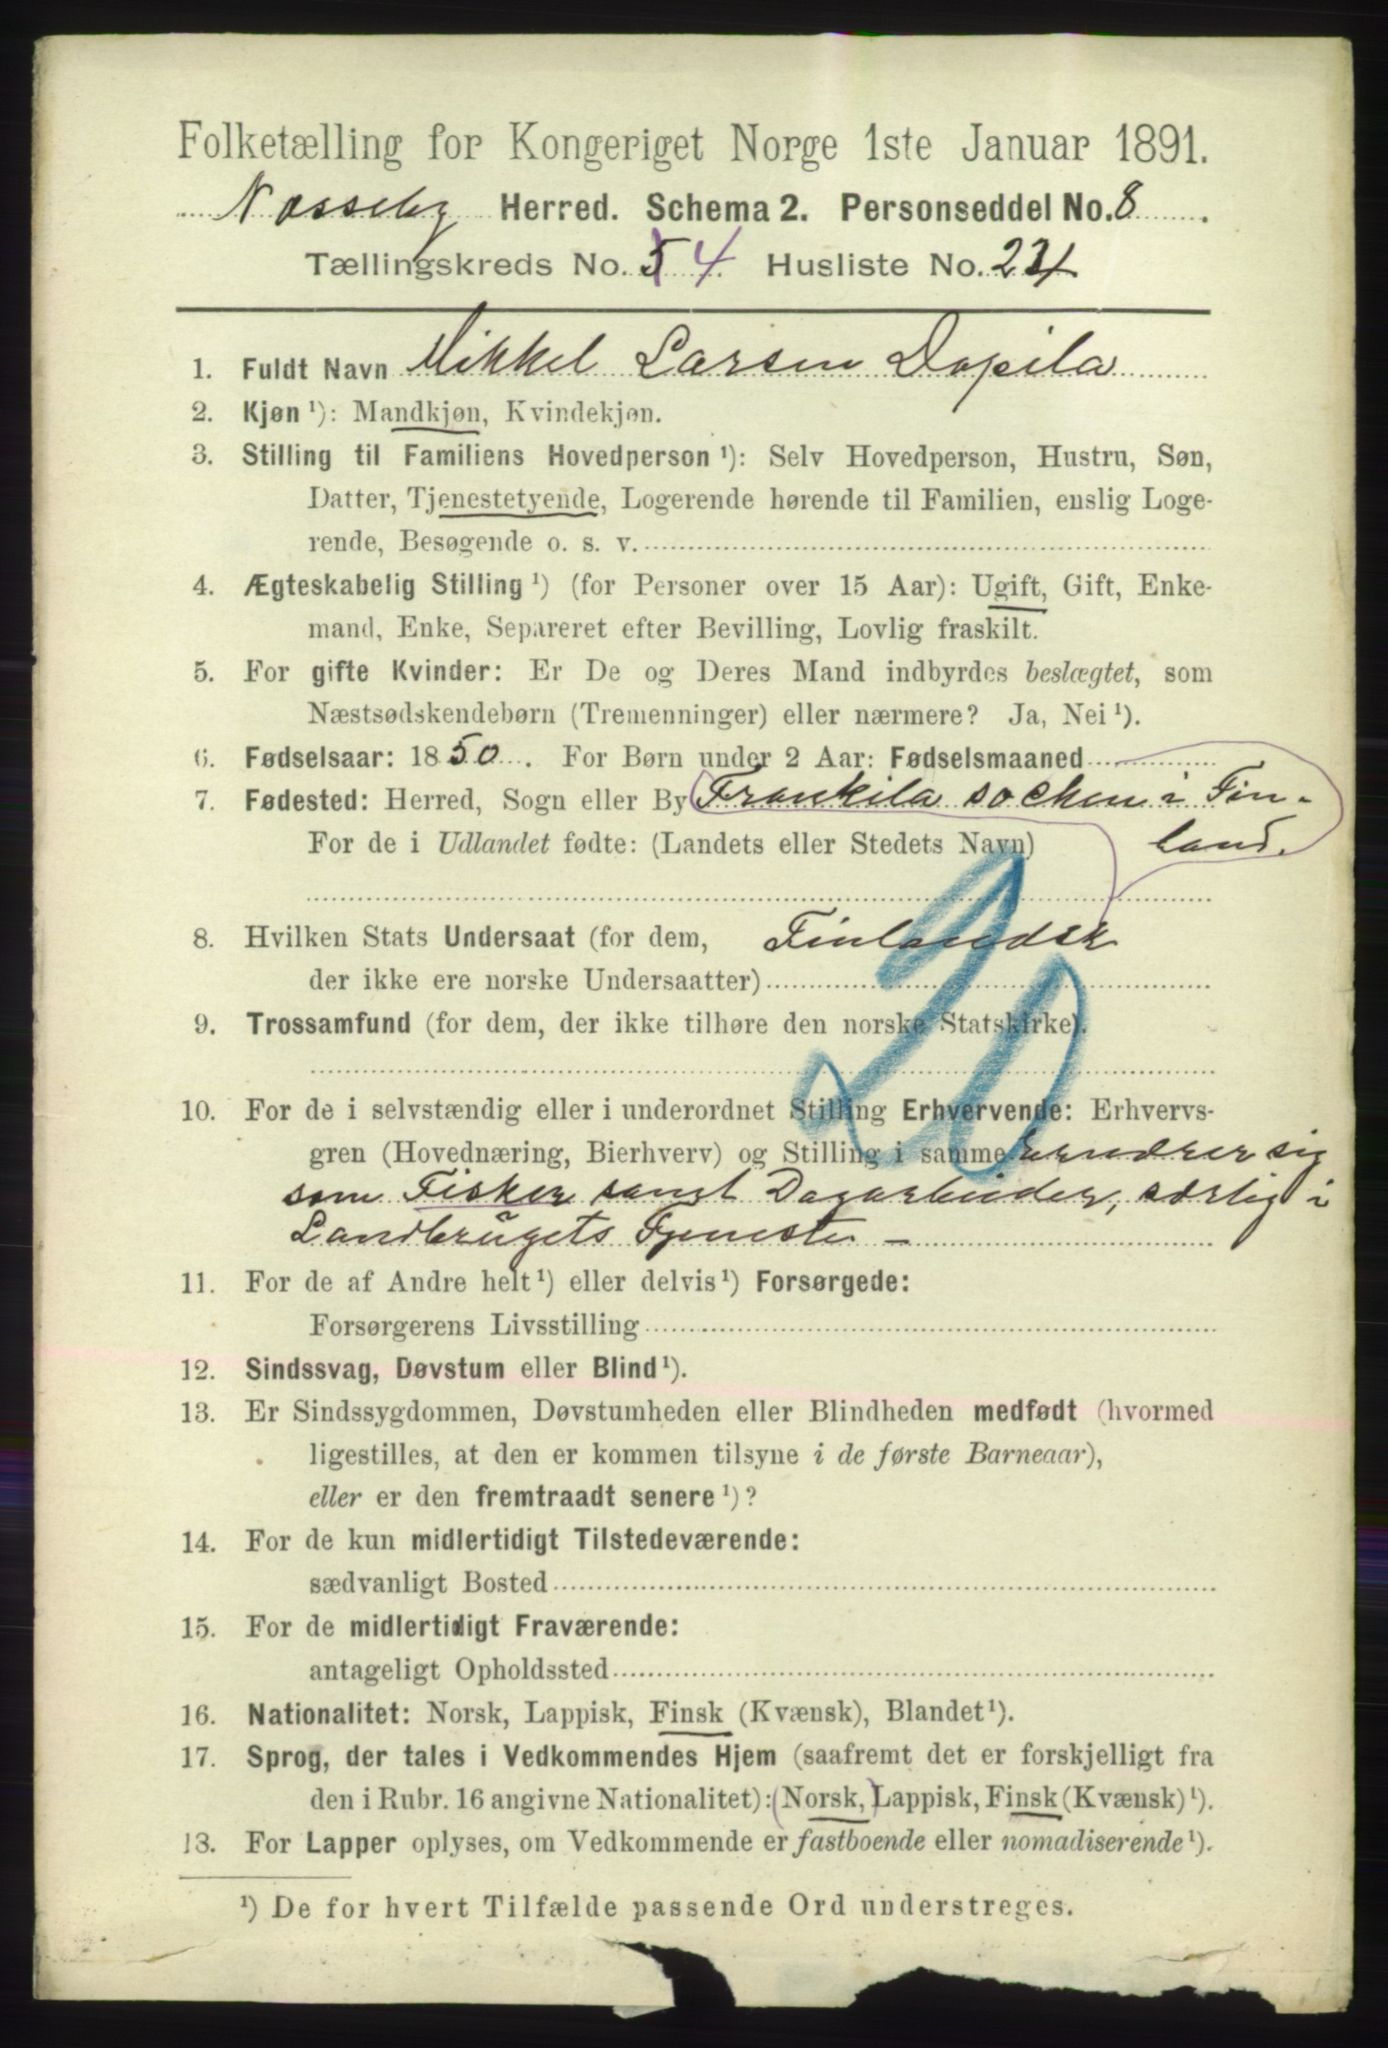 Folketælling for Kongeriget Norge 1ste Januar 1891.
Næsseby Herred. Schema 2. Personseddel No. 8.
Tællingskreds No. 5 4 Husliste No. 24
1. Fuldt Navn Mikkel Larsen Dopila
2. Kjøn ¹): Mandkjøn, Kvindekjøn.
3. Stilling til Familiens Hovedperson ¹): Selv Hovedperson, Hustru, Søn,
Datter, Tjenestetyende, Logerende hørende til Familien, enslig Loge-
rende, Besøgende o. s. v.
4. Ægteskabelig Stilling ¹) (for Personer over 15 Aar): Ugift, Gift, Enke-
mand, Enke, Separeret efter Bevilling, Lovlig fraskilt.
5. For gifte Kvinder: Er De og Deres Mand indbyrdes beslægtet, som
Næstsødskendebørn (Tremenninger) eller nærmere? Ja, Nei ¹).
6. Fødselsaar: 1850. For Børn under 2 Aar: Fødselsmaaned
7. Fødested: Herred, Sogn eller By Frankila socken i Fin-
For de i Udlandet fødte: (Landets eller Stedets Navn) land.
8. Hvilken Stats Undersaat (for dem, Finlandsk
der ikke ere norske Undersaatter)
20
9. Trossamfund (for dem, der ikke tilhøre den norske Statskirke).
10. For de i selvstændig eller i underordnet Stilling Erhvervende: Erhvervs-
gren (Hovednæring, Bierhverv) og Stilling i samme Ernærer sig
som Fisker samt Dagarbeider, særlig i
Landbrugets Tjeneste –
11. For de af Andre helt ¹) eller delvis ¹) Forsørgede:
Forsørgerens Livsstilling
12. Sindssvag, Døvstum eller Blind ¹).
13. Er Sindssygdommen, Døvstumheden eller Blindheden medfødt (hvormed
ligestilles, at den er kommen tilsyne i de første Barneaar),
eller er den fremtraadt senere ¹)?
14. For de kun midlertidigt Tilstedeværende:
sædvanligt Bosted
15. For de midlertidigt Fraværende:
antageligt Opholdssted
16. Nationalitet: Norsk, Lappisk, Finsk (Kvænsk), Blandet ¹).
17. Sprog, der tales i Vedkommendes Hjem (saafremt det er forskjelligt fra
den i Rubr. 16 angivne Nationalitet): (Norsk,) Lappisk, Finsk (Kvænsk) ¹).
13. For Lapper oplyses, om Vedkommende er fastboende eller nomadiserende ¹).
¹) De for hvert Tilfælde passende Ord understreges.